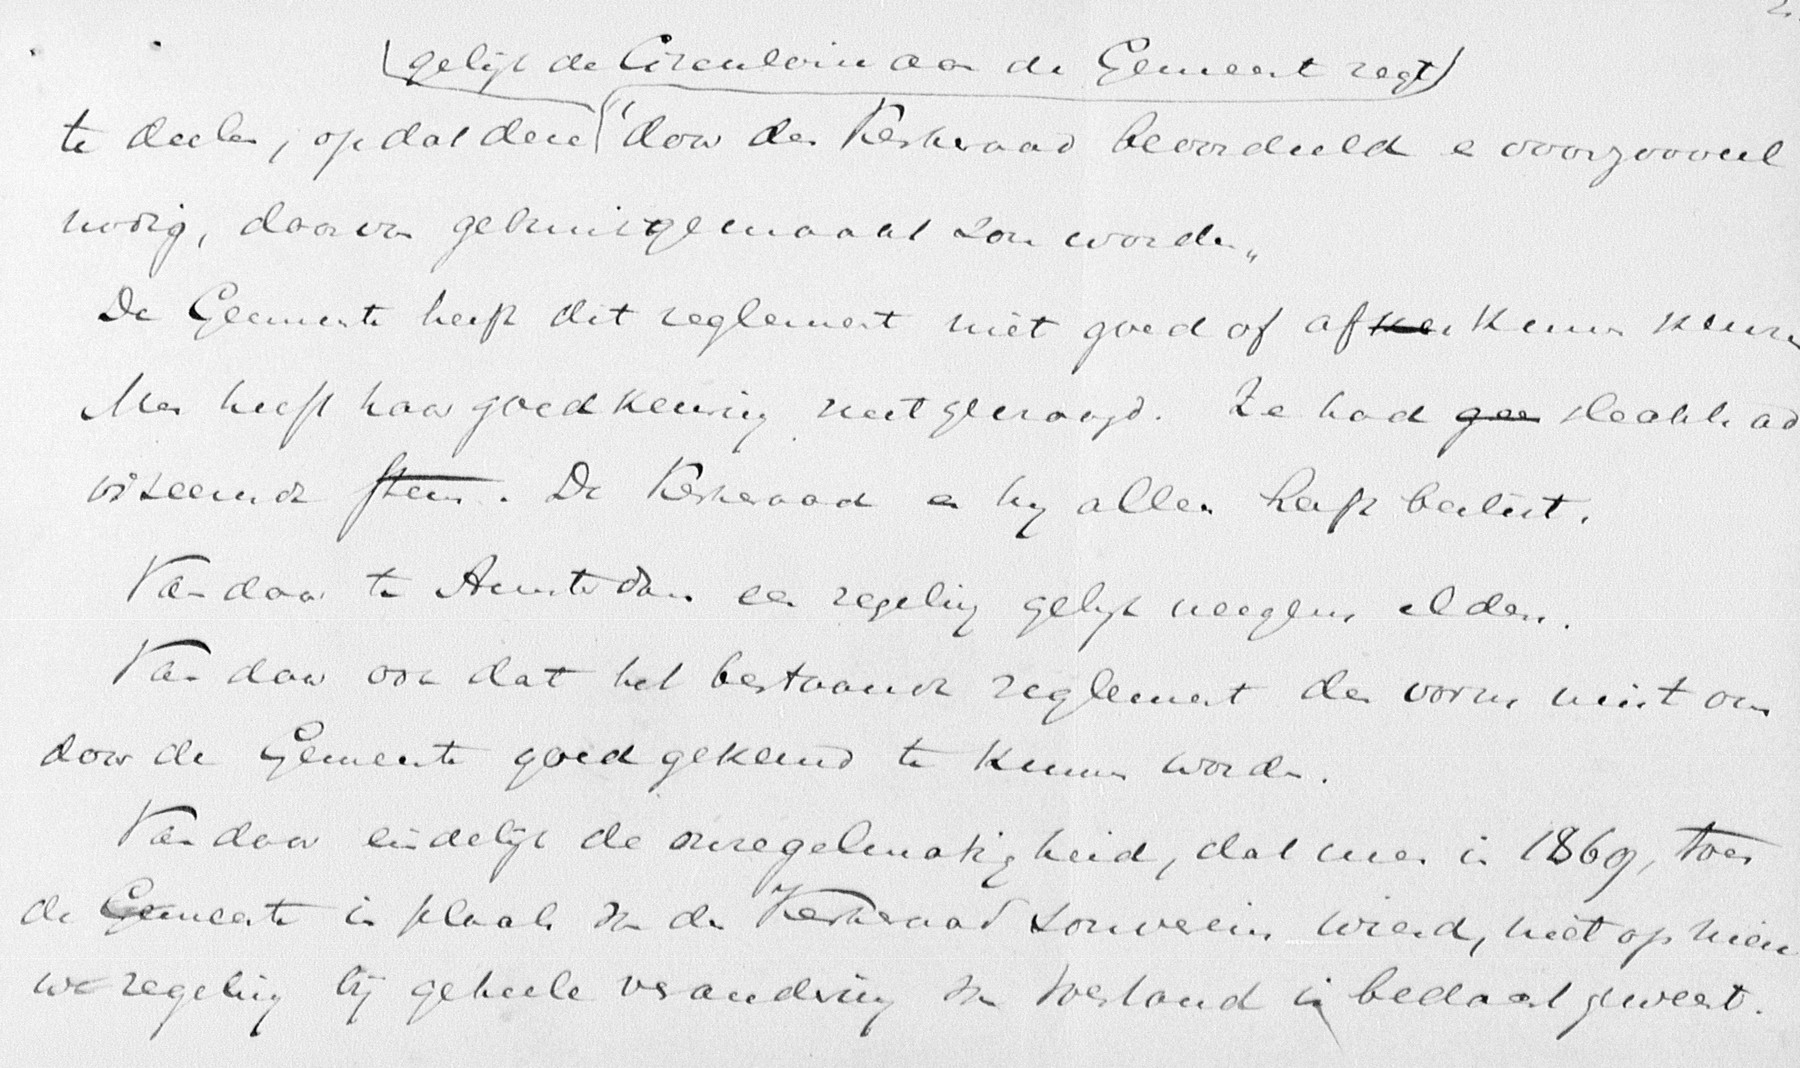 (gelijk de Circulaire aan de Gemeent zegt)
te deelen, opdat deze door den Kerkeraad beoordeeld en voorzooveel
nodig, daarvan gebruik gemaakt zou worden„
De Gemeente heeft dit reglement niet goed of afkeuren kunnen
Men heeft haar goedkeuring niet gevraagd. Ze had slechts ad
viseerende stem. De Kerkeraad en hij alleen heeft beslist.
Vandaar te Amsterdam een regeling gelijk nergens elders.
Vandaar ook dat het bestaande reglement den vorm mist om
door de Gemeente goedgekeurd te kunnen worden.
Vandaar eindelijk de onregelmatigheid, dat men in 1869, toen
de Gemeente in plaats van den Kerkeraad souverein wierd, niet op nieu
we regeling bij geheele verandering van toestand is bedacht geweest.